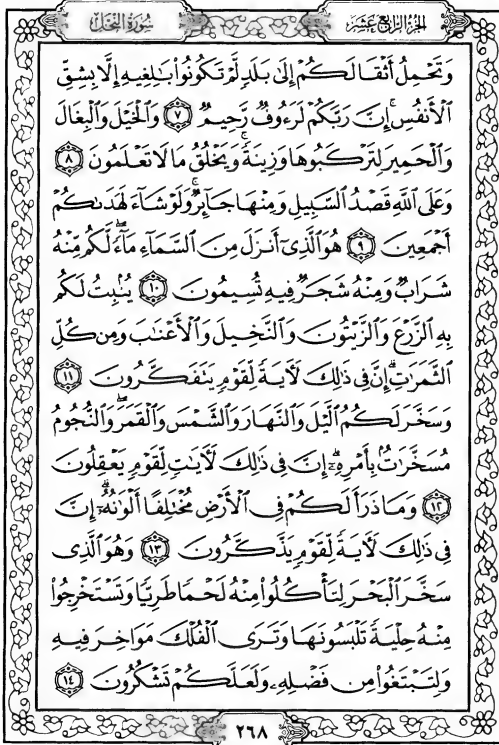 الجزء الرابع عشر
سورة النحل
وَتَحْمِلُ أَثْقَالَكُمْ إِلَىٰ بَلَدٍ لَّمْ تَكُونُوا۟ بَـٰلِغِيهِ إِلَّا بِشِقِّ
ٱلْأَنفُسِ ۚ إِنَّ رَبَّكُمْ لَرَءُوفٌ رَّحِيمٌ ٧ وَٱلْخَيْلَ وَٱلْبِغَالَ
وَٱلْحَمِيرَ لِتَرْكَبُوهَا وَزِينَةً ۚ وَيَخْلُقُ مَا لَا تَعْلَمُونَ ٨
وَعَلَى ٱللَّهِ قَصْدُ ٱلسَّبِيلِ وَمِنْهَا جَآئِرٌ ۚ وَلَوْ شَآءَ لَهَدَىٰكُمْ
أَجْمَعِينَ ٩ هُوَ ٱلَّذِىٓ أَنزَلَ مِنَ ٱلسَّمَآءِ مَآءً ۖ لَّكُم مِّنْهُ
شَرَابٌ وَمِنْهُ شَجَرٌ فِيهِ تُسِيمُونَ ١٠ يُنۢبِتُ لَكُم
بِهِ ٱلزَّرْعَ وَٱلزَّيْتُونَ وَٱلنَّخِيلَ وَٱلْأَعْنَـٰبَ وَمِن كُلِّ
ٱلثَّمَرَٰتِ ۗ إِنَّ فِى ذَٰلِكَ لَـَٔايَةً لِّقَوْمٍ يَتَفَكَّرُونَ ١١
وَسَخَّرَ لَكُمُ ٱلَّيْلَ وَٱلنَّهَارَ وَٱلشَّمْسَ وَٱلْقَمَرَ ۖ وَٱلنُّجُومُ
مُسَخَّرَٰتٌۢ بِأَمْرِهِۦٓ ۗ إِنَّ فِى ذَٰلِكَ لَـَٔايَـٰتٍ لِّقَوْمٍ يَعْقِلُونَ
١٢ وَمَا ذَرَأَ لَكُمْ فِى ٱلْأَرْضِ مُخْتَلِفًا أَلْوَٰنُهُۥٓ ۗ إِنَّ
فِى ذَٰلِكَ لَـَٔايَةً لِّقَوْمٍ يَذَّكَّرُونَ ١٣ وَهُوَ ٱلَّذِى
سَخَّرَ ٱلْبَحْرَ لِتَأْكُلُوا۟ مِنْهُ لَحْمًا طَرِيًّا وَتَسْتَخْرِجُوا۟
مِنْهُ حِلْيَةً تَلْبَسُونَهَا وَتَرَى ٱلْفُلْكَ مَوَاخِرَ فِيهِ
وَلِتَبْتَغُوا۟ مِن فَضْلِهِۦ وَلَعَلَّكُمْ تَشْكُرُونَ ١٤
٢٦٨